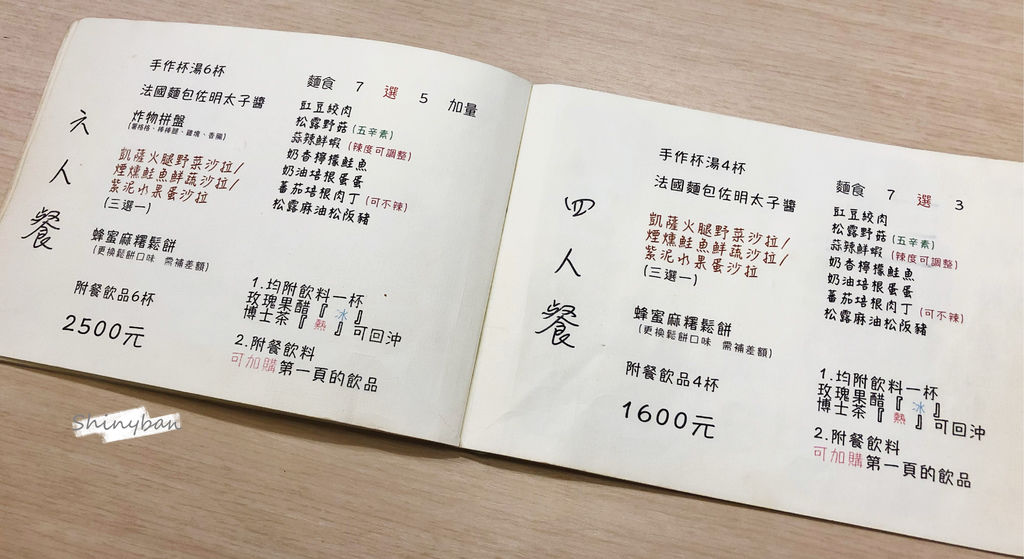 六人餐
手作杯湯6杯
法國麵包佐明太子醬
炸物拼盤
(薯格格、棒棒腿、雞塊、香腸)
凱薩火腿野菜沙拉/
煙燻鮭魚鮮蔬沙拉/
紫泥水果蛋沙拉
(三選一)
蜂蜜麻糬鬆餅
(更換鬆餅口味 需補差額)
附餐飲品6杯
2500元
麵食 7 選 5 加量
豇豆絞肉
松露野菇(五辛素)
蒜辣鮮蝦(辣度可調整)
奶香檸檬鮭魚
奶油培根蛋蛋
蕃茄培根肉丁(可不辣)
松露麻油松阪豬
1.均附飲料一杯
玫瑰果醋『 冰 』
博士茶『 熱 』可回沖
2.附餐飲料
可加購第一頁的飲品
四人餐
手作杯湯4杯
法國麵包佐明太子醬
凱薩火腿野菜沙拉/
煙燻鮭魚鮮蔬沙拉/
紫泥水果蛋沙拉
(三選一)
蜂蜜麻糬鬆餅
(更換鬆餅口味 需補差額)
附餐飲品4杯
1600元
麵食 7 選 3
豇豆絞肉
松露野菇(五辛素)
蒜辣鮮蝦(辣度可調整)
奶香檸檬鮭魚
奶油培根蛋蛋
蕃茄培根肉丁(可不辣)
松露麻油松阪豬
1.均附飲料一杯
玫瑰果醋『 冰 』
博士茶『 熱 』可回沖
2.附餐飲料
可加購第一頁的飲品
Shinyban